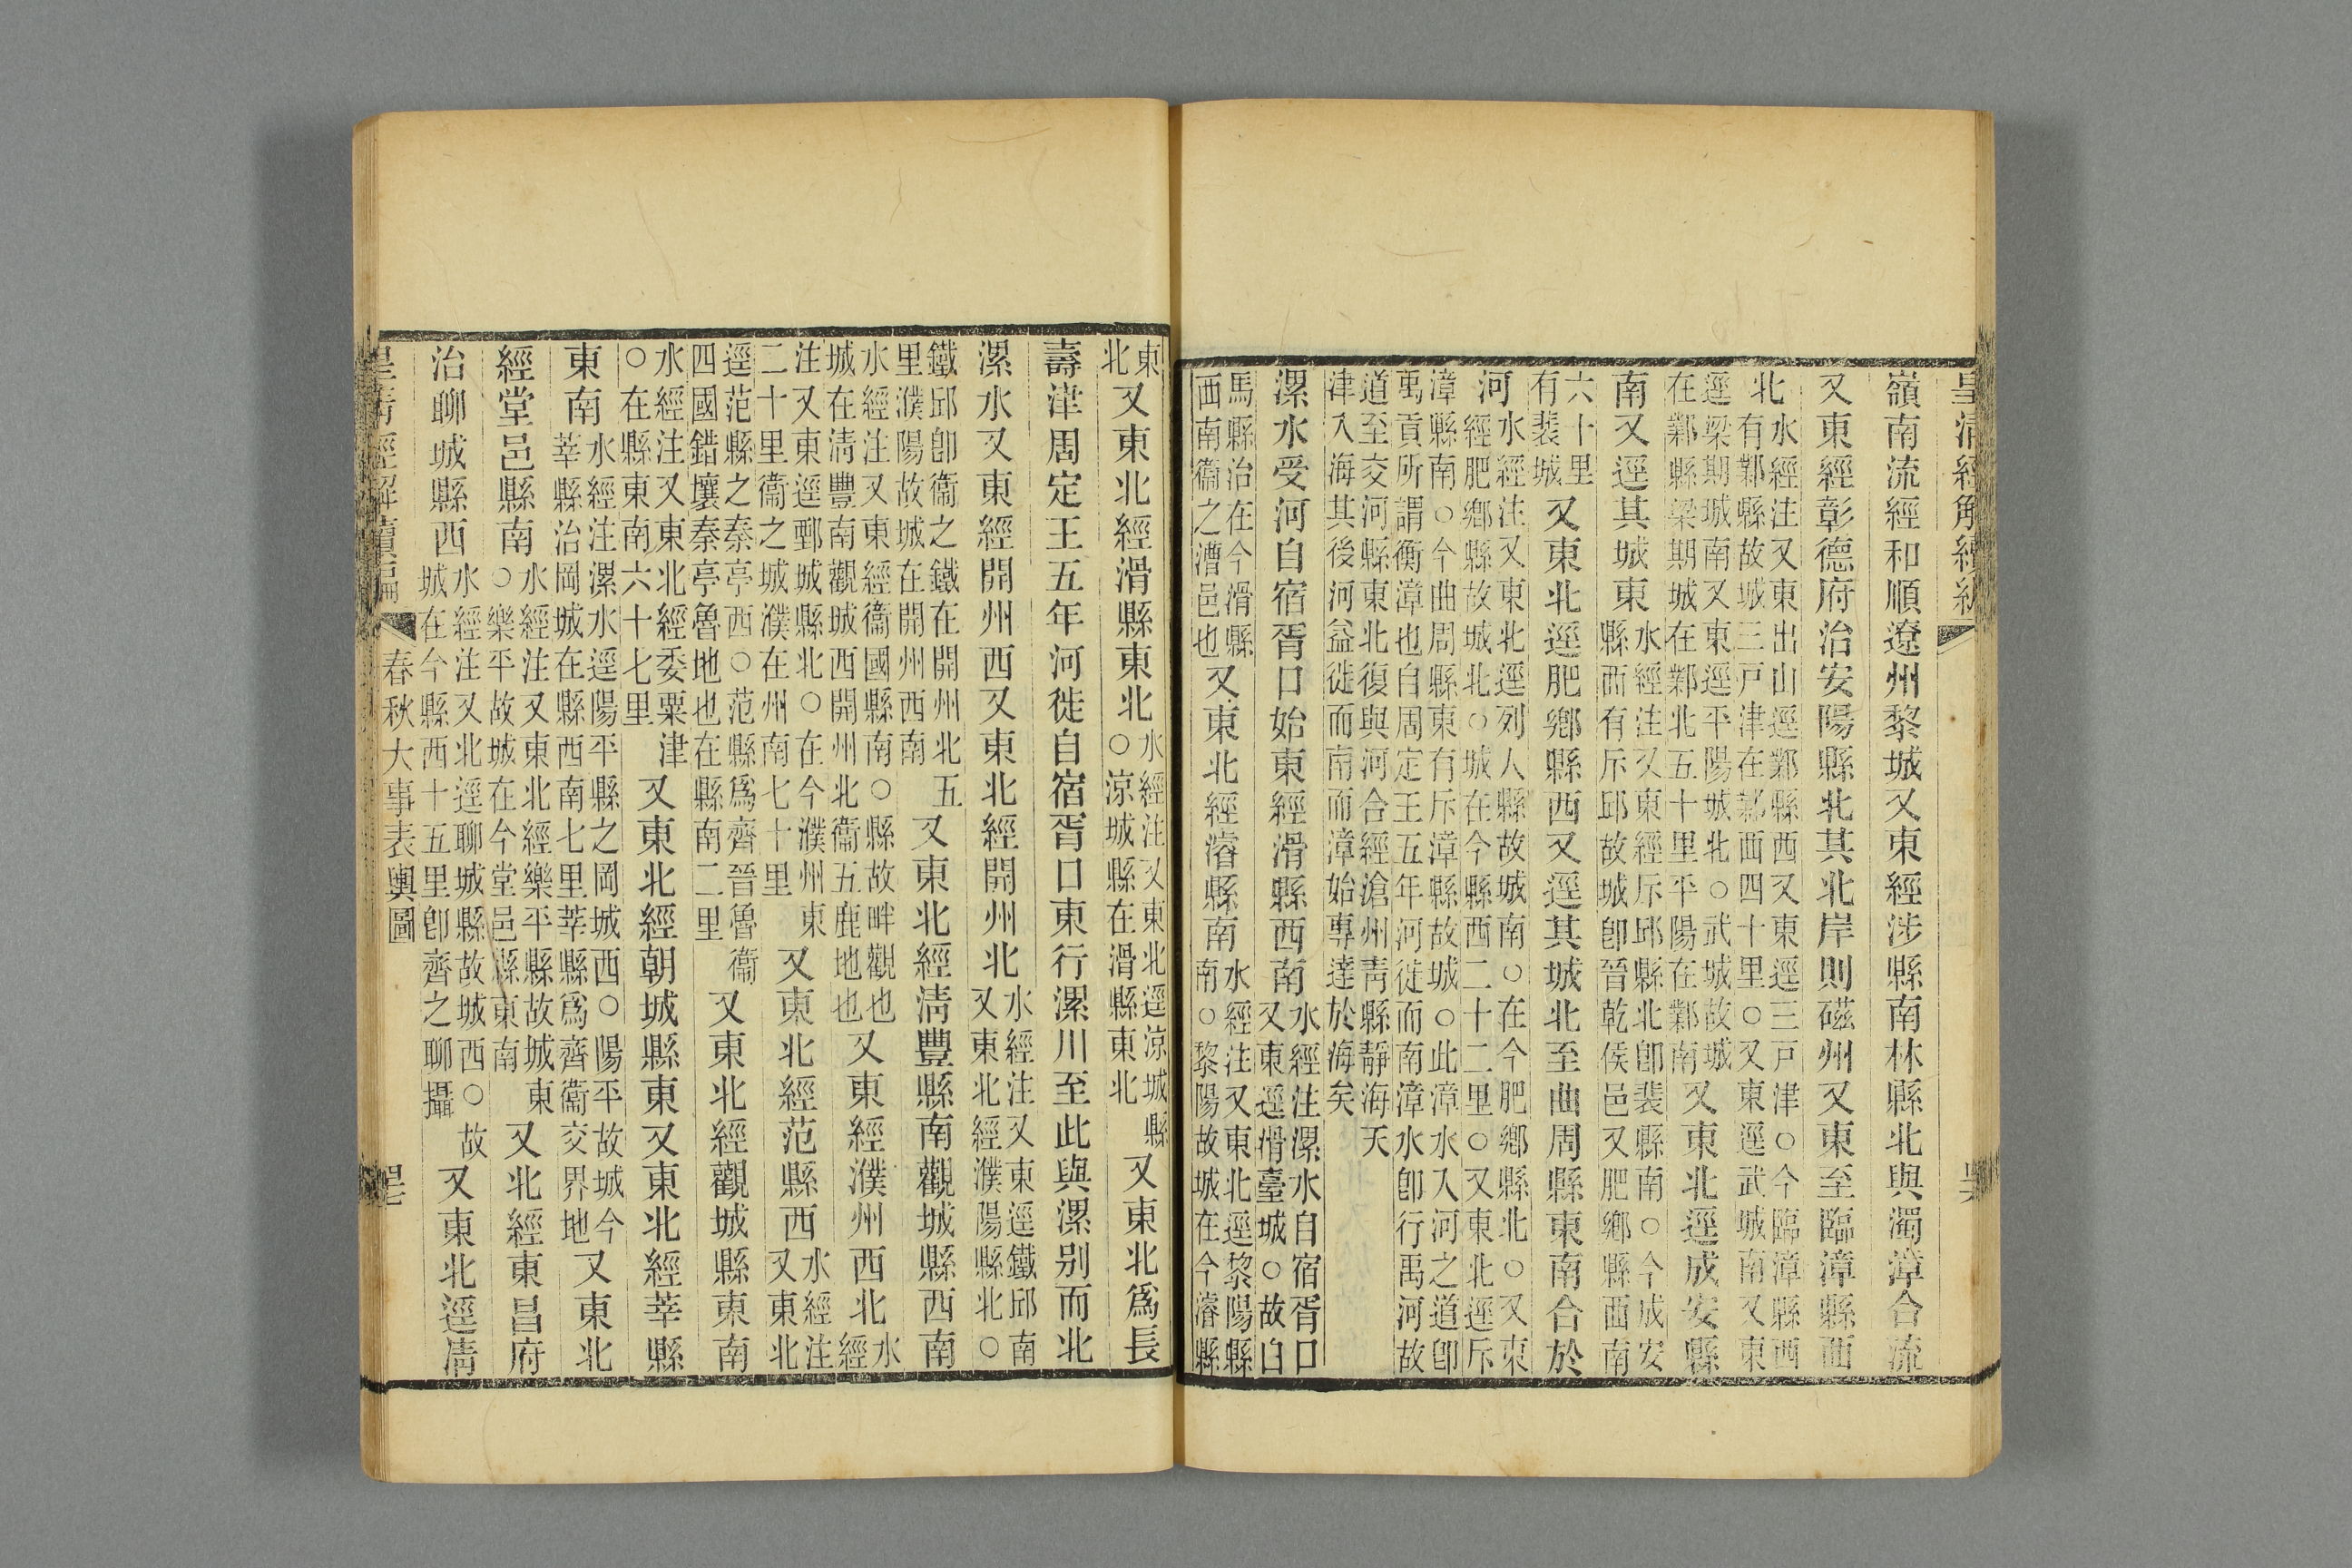 皇清經解續編
嶺南流經和順遼州黎城又東經涉縣南林縣北與濁漳合流
又東經彰德府治安陽縣北其北岸則磁州又東至臨漳縣西
北水經注又東出山逕鄴縣西又東逕三戸津○今臨漳縣西
有鄴縣故城三戸津在鄴西四十里○又東逕武城南又東
逕梁期城南又東逕平陽城北○武城故城
在鄴縣梁期城在鄴北五十里平陽在鄴南又東北逕成安縣
南又逕其城東水經注又東經斥邱縣北卽裴縣南○今成安
縣西有斥邱故城卽晉乾侯邑又肥鄉縣西南
六十里
有裴城又東北逕肥鄉縣西又逕其城北至曲周縣東南合於
河水經注又東北逕列人縣故城南○在今肥鄉縣北○又東
經肥鄉縣故城北○城在今縣西二十二里○又東北逕斥
漳縣南○今曲周縣東有斥漳縣故城○此漳水入河之道卽
禹貢所謂衡漳也自周定王五年河徙而南漳水卽行禹河故
道至交河縣東北復與河合經滄州靑縣靜海天
津入海其後河益徙而南而漳始專達於海矣
漯水受河自宿胥口始東經滑縣西南水經注漯水自宿胥口
又東逕滑臺城○故白
馬縣治在今滑縣
西南衞之漕邑也又東北經濬縣南水經注又東北逕黎陽縣
南○黎陽故城在今濬縣
東
北又東北經滑縣東北水經注又東北逕涼城縣
○涼城縣在滑縣東北又東北爲長
壽津周定王五年河徙自宿胥口東行漯川至此與漯别而北
漯水又東經開州西又東北經開州北水經注又東逕鐵邱南
又東北經濮陽縣北○
鐵邱卽衞之鐵在開州北五
里濮陽故城在開州西南又東北經淸豐縣南觀城縣西南
水經注又東經衞國縣南○縣故畔觀也
城在淸豐南觀城西開州北衞五鹿地也又東經濮州西北水
經
注又東逕鄄城縣北○在今濮州東
二十里衞之城濮在州南七十里又東北經范縣西水經注
又東北
逕范縣之秦亭西○范縣爲齊晉魯衞
四國錯壤秦亭魯地也在縣南二里又東北經觀城縣東南
水經注又東北經委粟津
○在縣東南六十七里又東北經朝城縣東又東北經莘縣
東南水經注漯水逕陽平縣之岡城西○陽平故城今
莘縣治岡城在縣西南七里莘縣爲齊衞交界地又東北
經堂邑縣南水經注又東北經樂平縣故城東
○樂平故城在今堂邑縣東南又北經東昌府
治聊城縣西水經注又北逕聊城縣故城西○故
城在今縣西十五里卽齊之聊攝又東北逕淸
皇清經解續編 春秋大事表輿圖